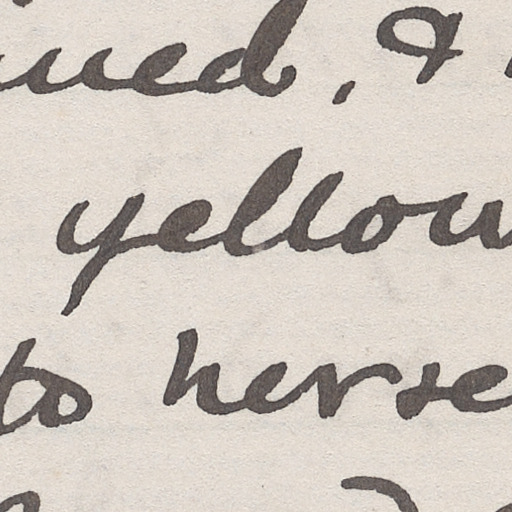 ned, &
yellow
to herse